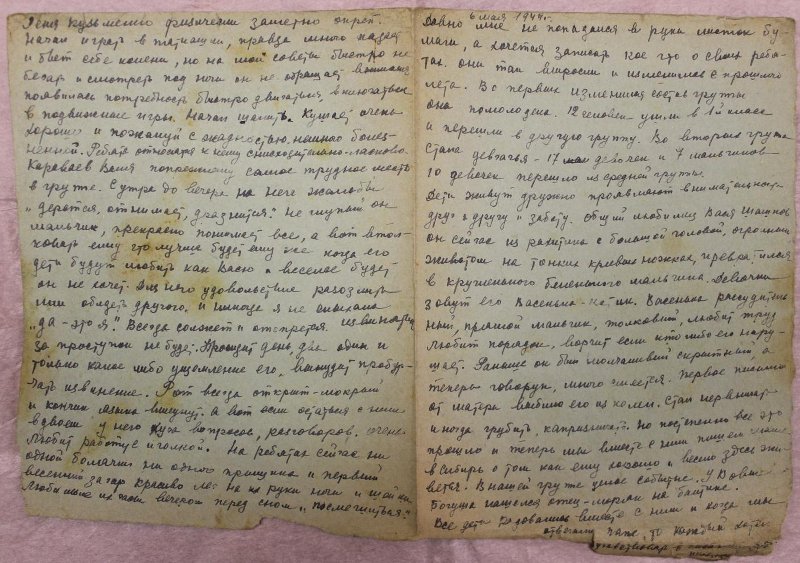 6 мая 1944 г.
Давно мне не попадался в руки листок бу-
маги, а хочется записать кое что о своих ребя-
тах. они так выросли и изменились с прошлого
лета. Во первых изменился состав группы
она помолодела. 12 человек ушли в 1й класс
и перешли в другую группу. Во вторых группа
стала девчачья - 17 девочек и 7 мальчиков
10 девочек перешло из средней группы.
Дети живут дружно проявляют внимательность
друг к другу и заботу. общий любимец Валя
он сейчас из рахитика с большой головой, огромным
животом на тонких кривых ножках, превратился
в кругленького беленького мальчика. Девочки
зовут его Васенька-котик. Васенька рассудитель
ный, прямой мальчик, толковый, любит труд
любит порядок, ворчит если кто либо его нару-
шает. Раньше он был молчаливый скрытный, а
теперь говорун, много смеется. Первое письмо
от матери выбило его из колеи. Стал нервничать
иногда грубить, капризничать. Но постепенно все это
прошло и теперь мы вместе с ним пишем маме
в Сибирь о том как ему хорошо и весело здесь жи-
ветья. В нашей группе целое событие. У Вовы
Богуша нашелся отец - моряк на Балтике.
Все дети радовались вместе с ним и когда мы
отвечали папе, то каждый хотел

Леня Кузьменко физически заметно окреп.
Начал играть в пятнашки, правда много падает
и бьет себе колени, но на мой советы быстро не
бегать и смотреть под ноги он не обращает внимания
появилась потребность быстро двигаться включаться
в подвижные игры. Начал шалить. Кушает очень
хорошо и пожалуй с жадностью
Ребята относятся к нему снисходительно-ласково
Караваев Ваня попрежнему самое трудное место
в группе. С утра до вечера на него жалобы
"дерется, отнимает, дразнится". Не глупый он
мальчик, прекрасно понимает все, а вот втол-
ковать ему что лучше будет ему же когда его
дети будут любить как Васю и веселее будет
он не хочет. Для него удовольствие разозлить
или обидеть другого, и никогда я не слыхала
"да - это я". Всегда солжет и отопрется. извиняться
за проступок не будет. Проходит день, два один и
только какое либо ущемление его, вынудит пробур-
чать извинение. Рот всегда открыт - мокрый
и кончик языка высунут. а вот если остаться с ним
вдвоем у него куча вопросов, разговоров. очень
любит работу с иголкой. На ребятах сейчас ни
одной болячки ни одного прыщика и первый
весенний загар красиво лег на их руки ноги и шейки
их перед сном "посмешить".